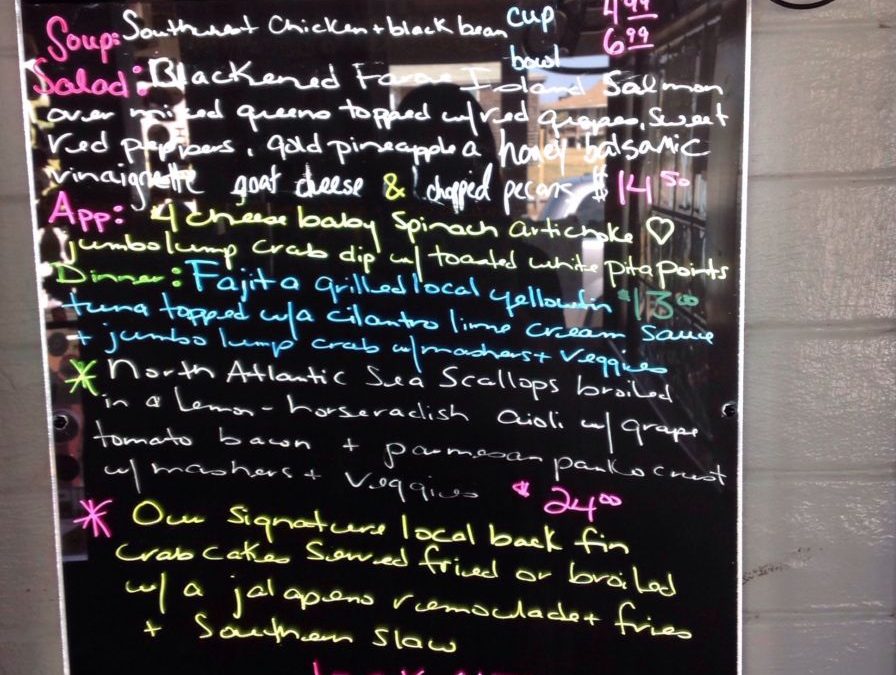 Soup: Southwest Chicken + black bean cup 4.99
bowl 6.99
Salad: Blackened Faroe Island Salmon
over mixed greens topped w/ red grapes, sweet
red peppers, gold pineapple a honey balsamic
vinaigrette goat cheese & chopped pecans $14.50
App: 4 cheese baby Spinach Artichoke ♡
jumbo lump crab dip w/ toasted white pita points
Dinner: Fajita grilled local yellowfin $13.00
tuna topped w/a cilantro lime cream sauce
+ jumbo lump crab w/ mashers + veggies
* North Atlantic Sea Scallops broiled
in a lemon-horseradish aioli w/ grape
tomato bacon + parmesan panko crust
w/ mashers + veggies $24.00
* Our signature local back fin
crab cakes served fried or broiled
w/ a jalapeno remoulade + fries
+ Southern Slaw